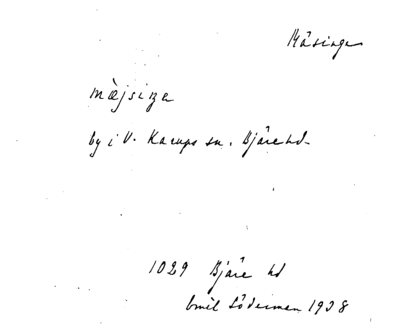 Måsinge
mæ̀jsiŋa
by i V. Karups sn. Bjäre hd.
1029 Bjäre hd
Emil Söderman 1938